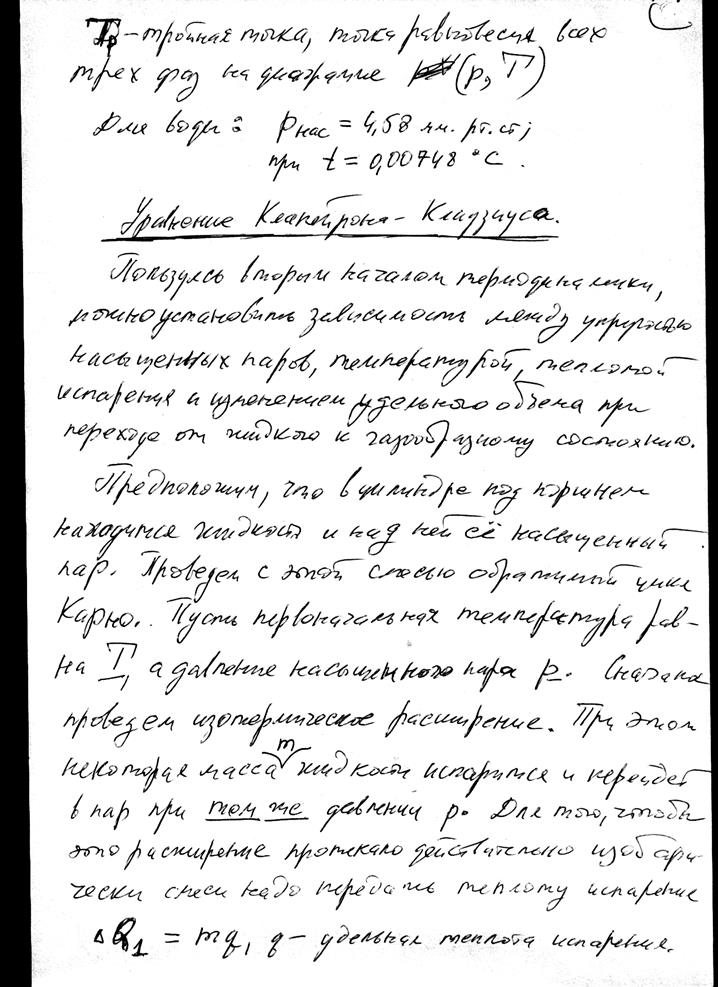 Tр - тройная точка, точка равновесия всех
трех фаз на диаграмме (p, T)
Для воды: pнас = 4,58 мм. рт. ст;
при t = 0,00748 °C.
Уравнение Клапейрона - Клаузиуса.
Пользуясь вторым началом термодинамики,
можно установить зависимость между упругостью
насыщенных паров, температурой, теплотой
испарения и изменением удельного объема при
переходе от жидкого к газообразному состоянию.
Предположим, что в цилиндре под поршнем
находится жидкость и над ней её насыщенный
пар. Проведем с этой смесью обратимый цикл
Карно. Пусть первоначальная температура рав-
на T, а давление насыщенного пара p. Сначала
проведем изотермическое расширение. При этом
некоторая масса m жидкости испарится и перейдет
в пар при том же давлении p. Для того, чтобы
это расширение протекало действительно изобари-
чески смеси надо передать теплоту испарения
ΔQ1 = mq, q - удельная теплота испарения.